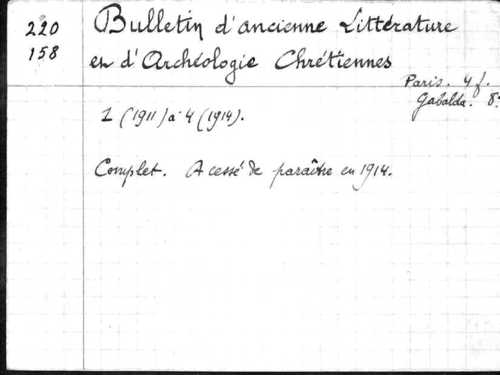 220
158
Bulletin d'ancienne Littérature
et d'Archéologie Chrétiennes
Paris. 4 f.
Gabalda. 8°
1 (1911) à 4 (1914).
Complet. A cessé de paraître en 1914.